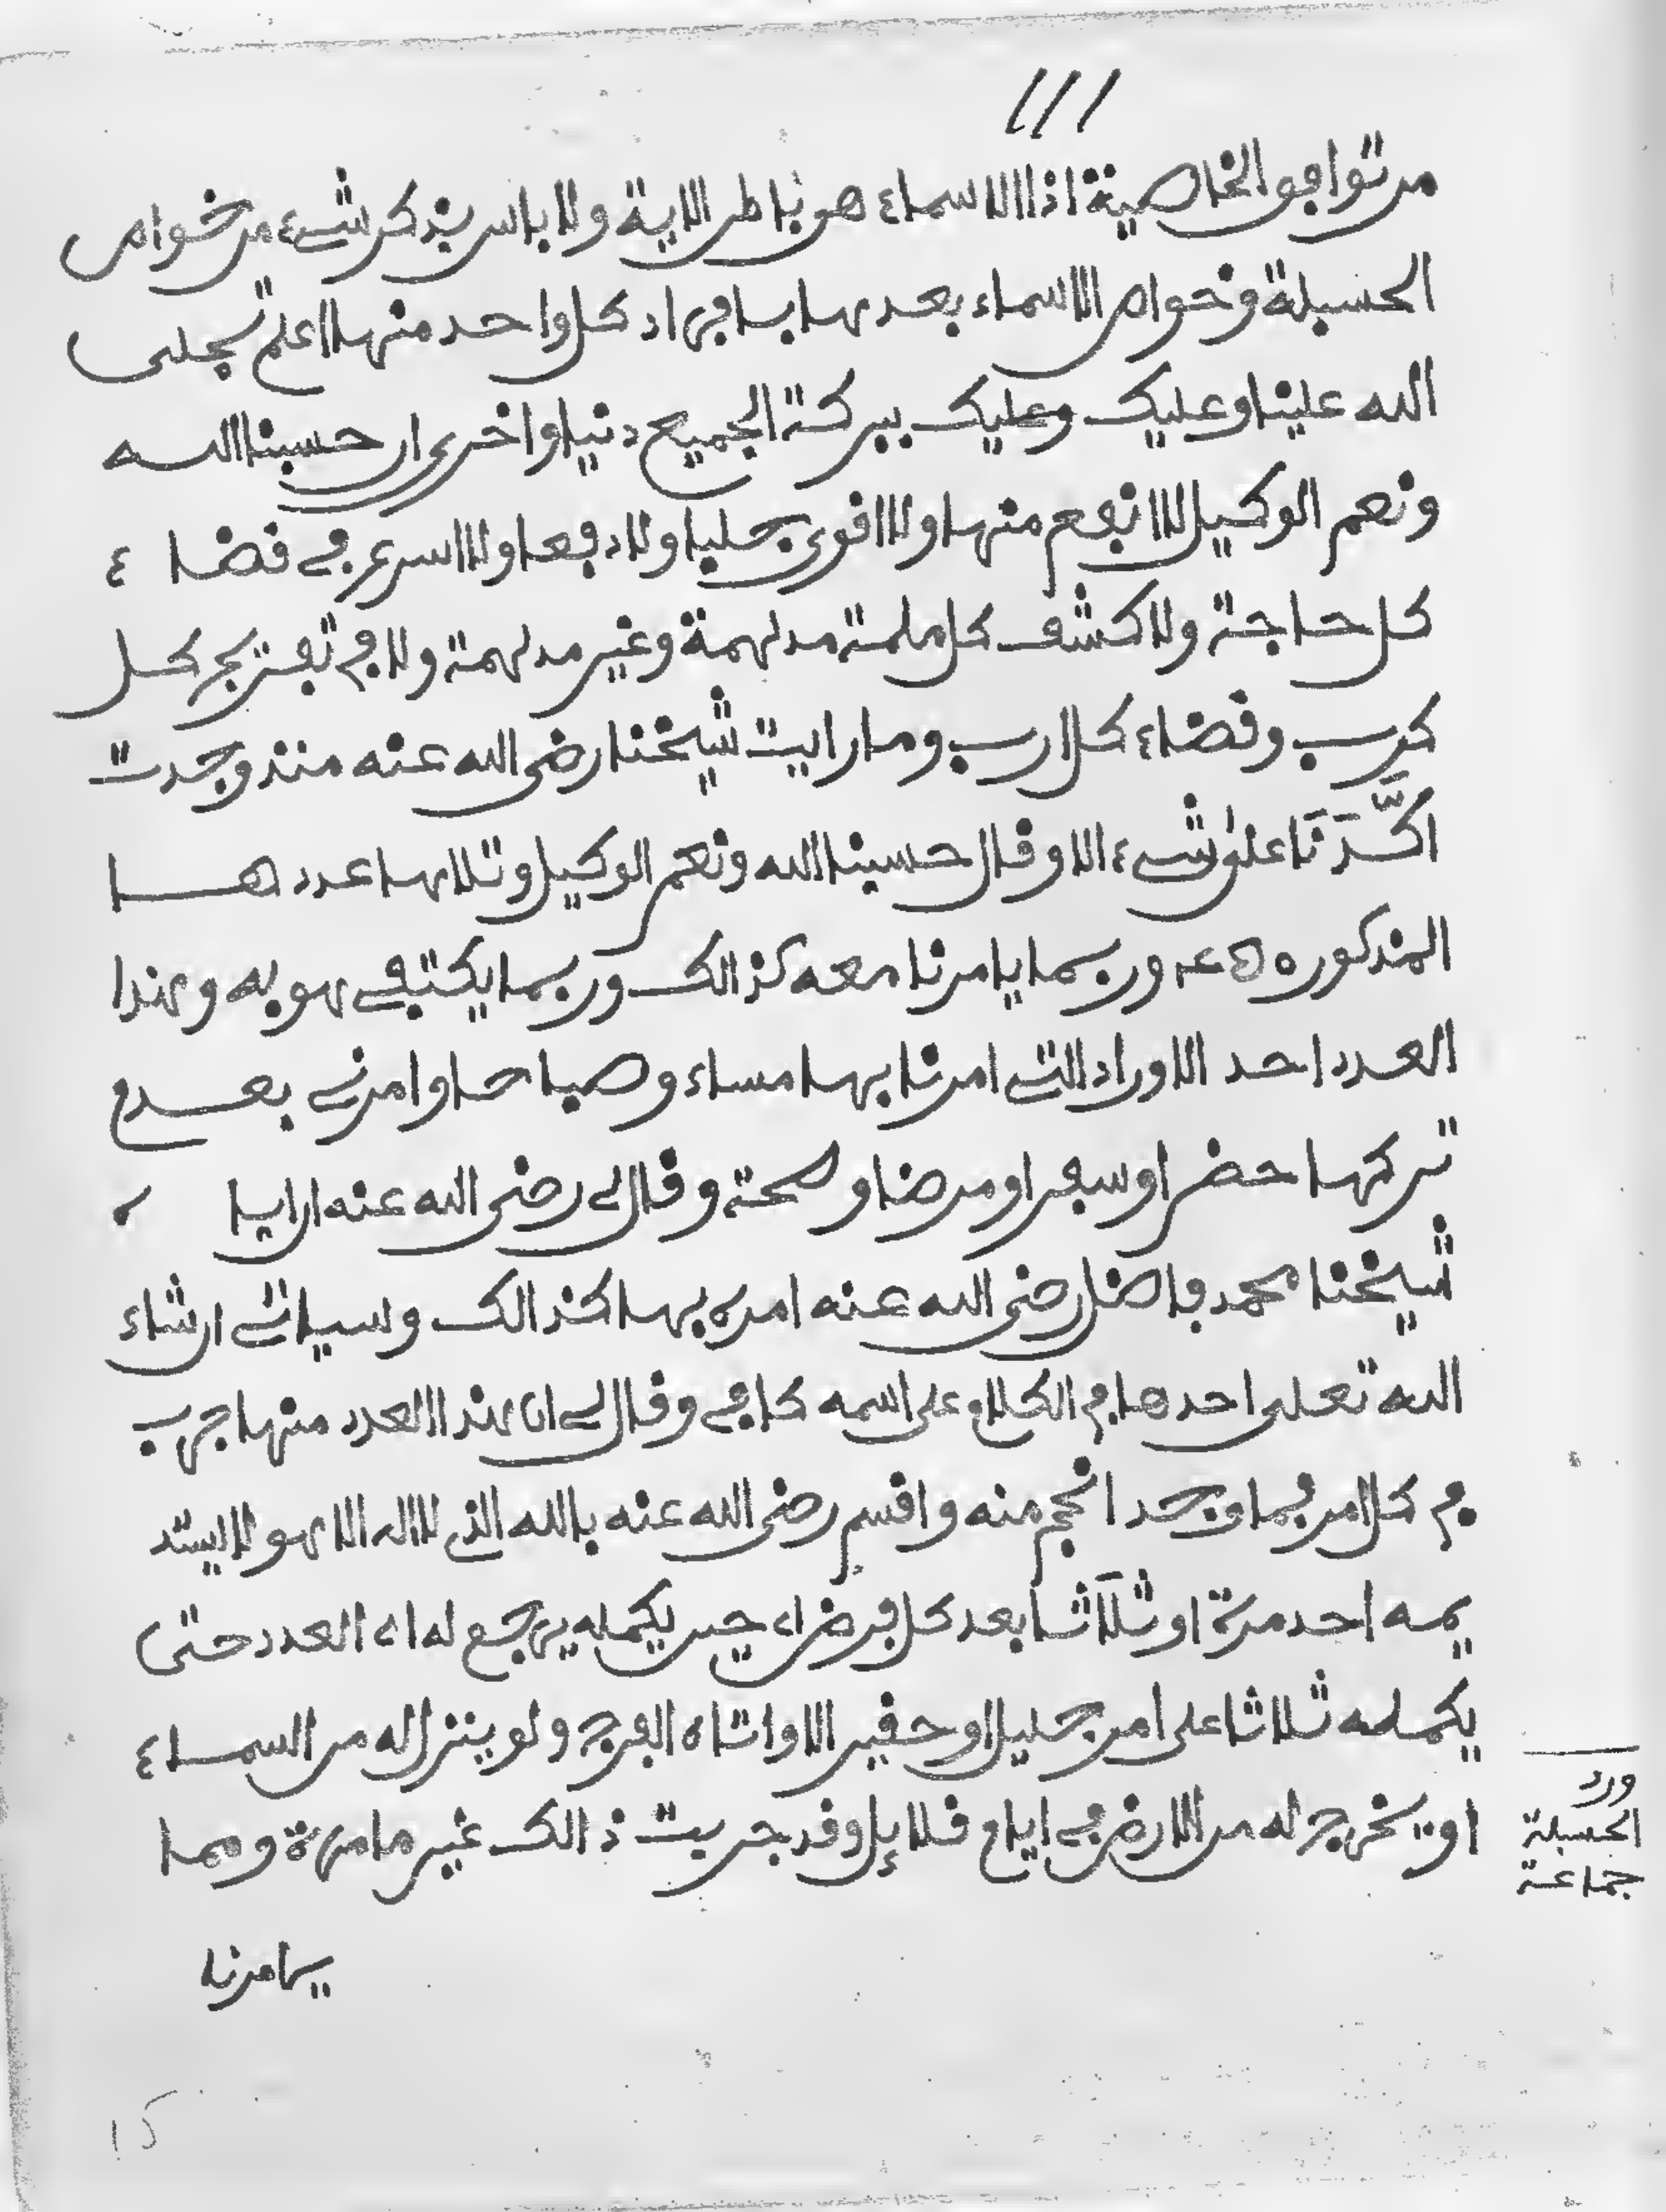 111
من توافق الخاصية اذا الاسماء هو باطن الاية ولا باس بذكر شيء من خواص
الحسبلة وخواص الاسماء بعدها بافراد كل واحد منها اعلم تجلى
الله علينا وعليك وعليك ببركة الجميع دنيا واخرى ان حسبنا الله
ونعم الوكيل لا انفع منها ولا اقوى جلبا ولا دفعا ولا اسرع في قضاء
كل حاجة ولا كشف كل ملمة مدلهمة وغير مدلهمة ولا في تفريج كل
كرب وقضاء كل ارب وما رايت شيخنا رضى الله عنه منذ وجدت
اكَّدَنَا على شيء الا وقال حسبنا الله ونعم الوكيل وتلاها عددها
المذكور وربما يامرنا معه كذالك وربما يكتفي هو به وهذا
العدد احد الاوراد التي امرنا بها مساء وصباحا وامرني بعدم
تركها حضرا وسفرا ومرضا وصحة وقال لي رضى الله عنه ان ابا
شيخنا محمد فاضل رضى الله عنه امره بها كذالك وسياتي ان شاء
الله تعلى احدها في الكلام على اسمه كافي وقال لي ان هذا العدد منها جرب
في كل امر فما وجد انجح منه واقسم رضى الله عنه بالله الذي لا اله الا هو لا يستد
يمه احد مرة او ثلَاثا بعد كل فرض اي حين يكمله يرجع له اي العدد حتى
يكمله ثلاثا على امر جليل او حقير الا واتاه الفرج ولو ينزل له من السماء
او يخرج له من الارض في ايام قلائل وقد جربت ذالك غير ما مرة ومما
يامرنا
ورد
الحسبلة
جماعة